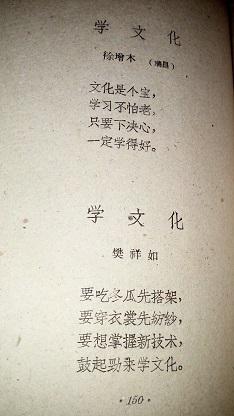 学文化
徐增木 (瑞昌)
文化是个宝，
学习不怕老，
只要下决心，
一定学得好。
学文化
樊祥如
要吃冬瓜先搭架，
要穿衣裳先紡紗，
要想掌握新技术，
鼓起勁来学文化。
·150·